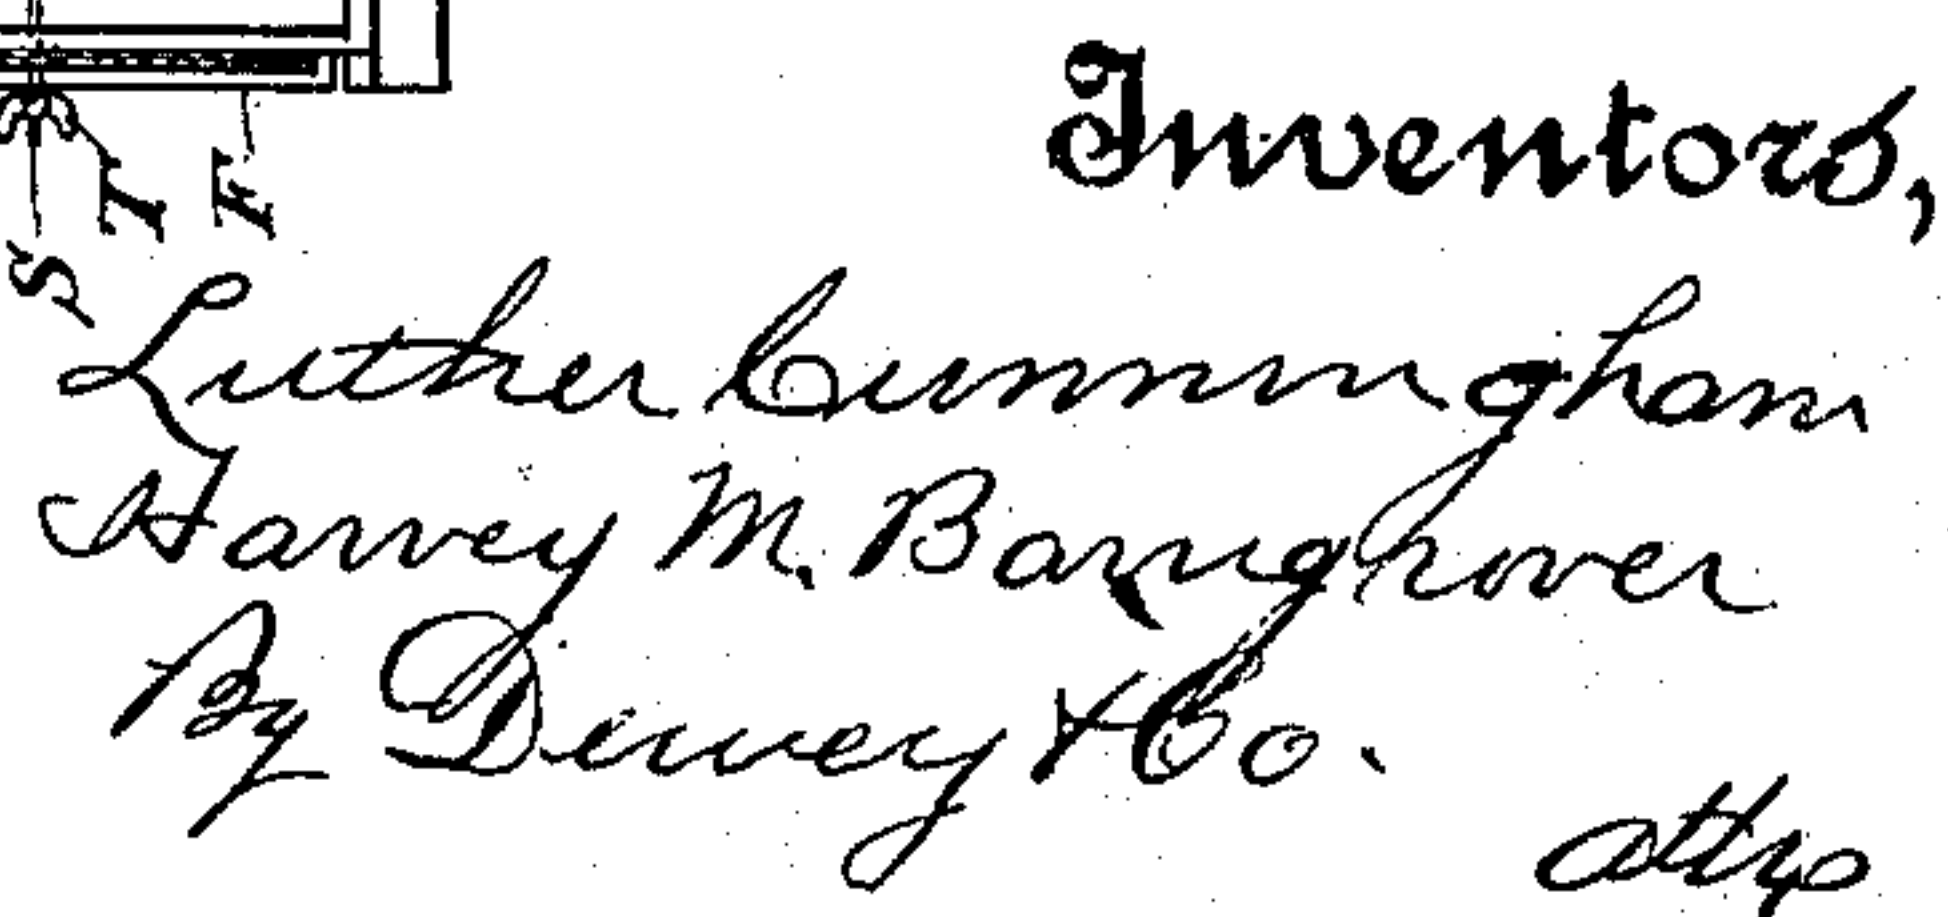 Inventors,
Luther Cunningham
Harvey M. Barnghover
By Dewey & Co.
attys